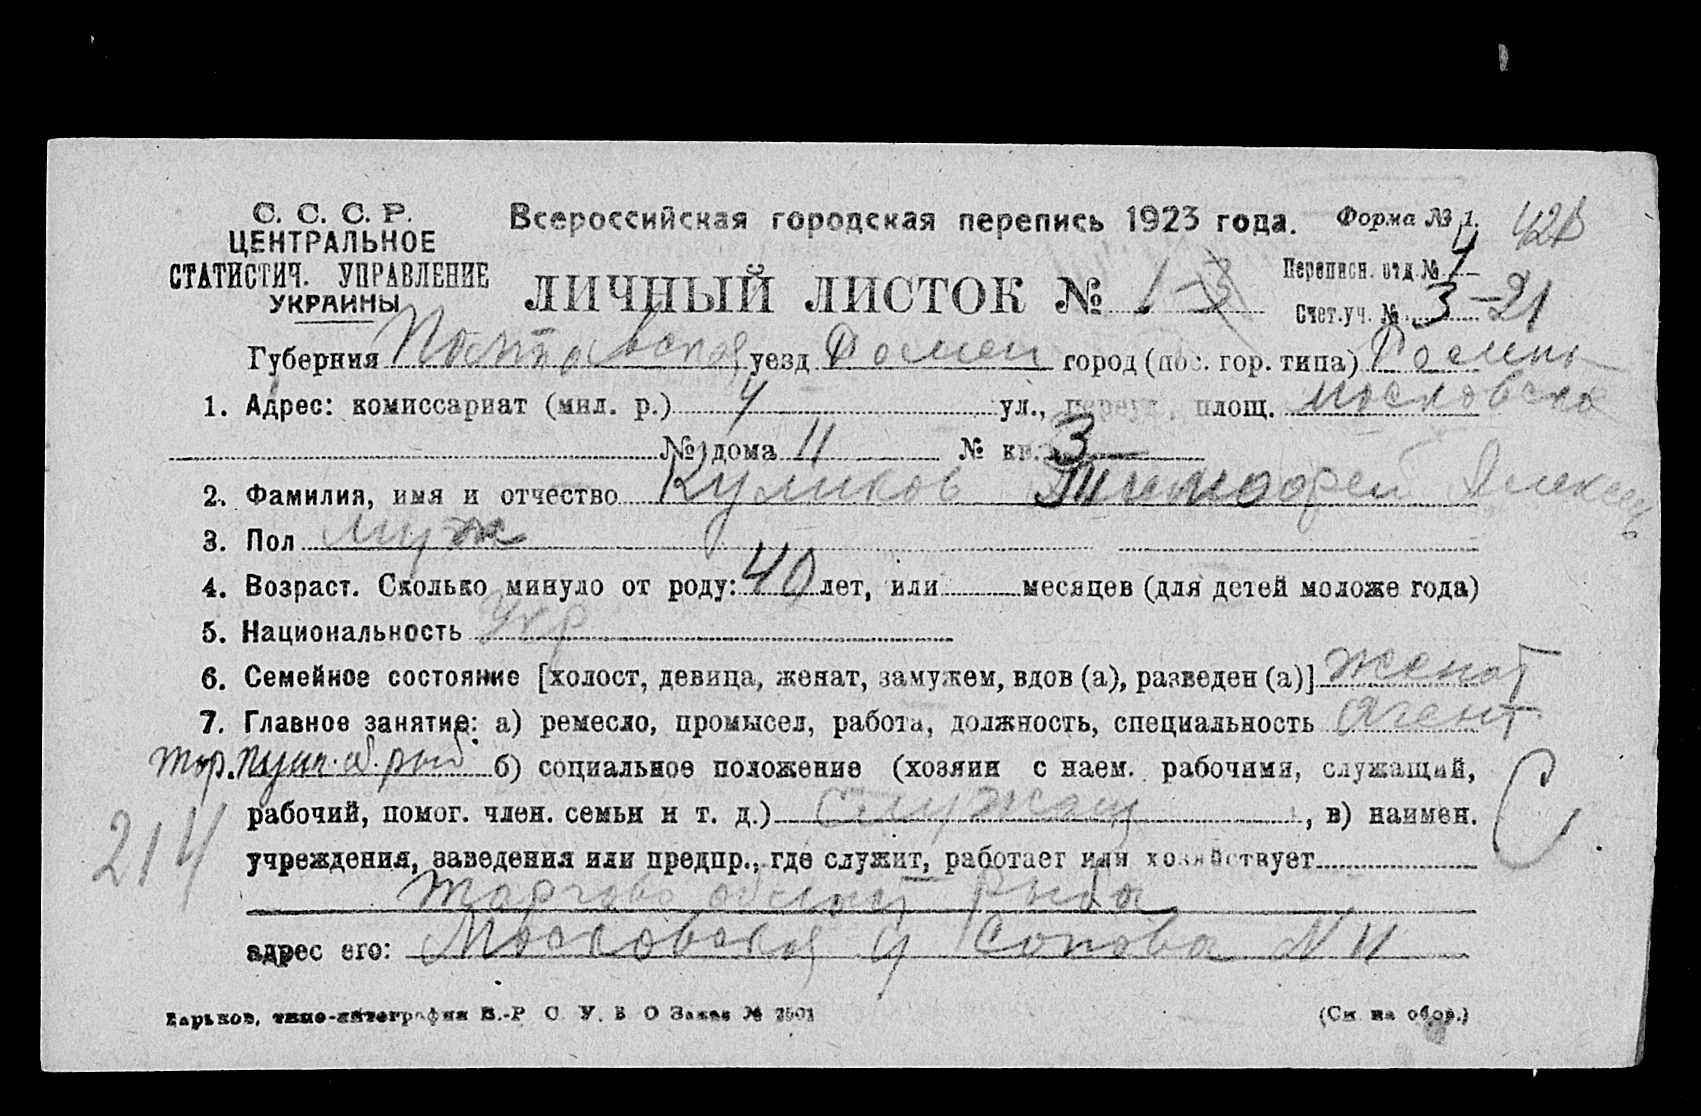 С. С. С. Р.
ЦЕНТРАЛЬНОЕ
СТАТИСТИЧ. УПРАВЛЕНИЕ
УКРАИНЫ
Всероссийская городская перепись 1923 года.
Форма № 1.
ЛИЧНЫЙ ЛИСТОК № 1-3
Переписн. отд. № 4
Счет. уч. № 3-21
Губерния Полтавская уезд Ромен город (пос. гор. типа) Ромны
1. Адрес: комиссариат (мил. р.) 4 ул., переул., площ. Московска
№ дома 11 № кв. 3
2. Фамилия, имя и отчество Куликов Тимофей Алексеев
3. Пол муж
4. Возраст. Сколько минуло от роду: 40 лет, или месяцев (для детей моложе года)
5. Национальность Укр
6. Семейное состояние [холост, девица, женат, замужем, вдов (а), разведен (а)] женат
7. Главное занятие: а) ремесло, промысел, работа, должность, специальность Агент
б) социальное положение (хозяин с наем. рабочими, служащий,
рабочий, помог. член. семьи и т. д.) Служащ, в) наимен.
214
С
учреждения, заведения или предпр., где служит, работает или хозяйствует
Рыба
адрес его: Московская у Сопова N 11
Харьков, типо-литография В.-Р С. У. В О Заказ №
(См. на обор.)